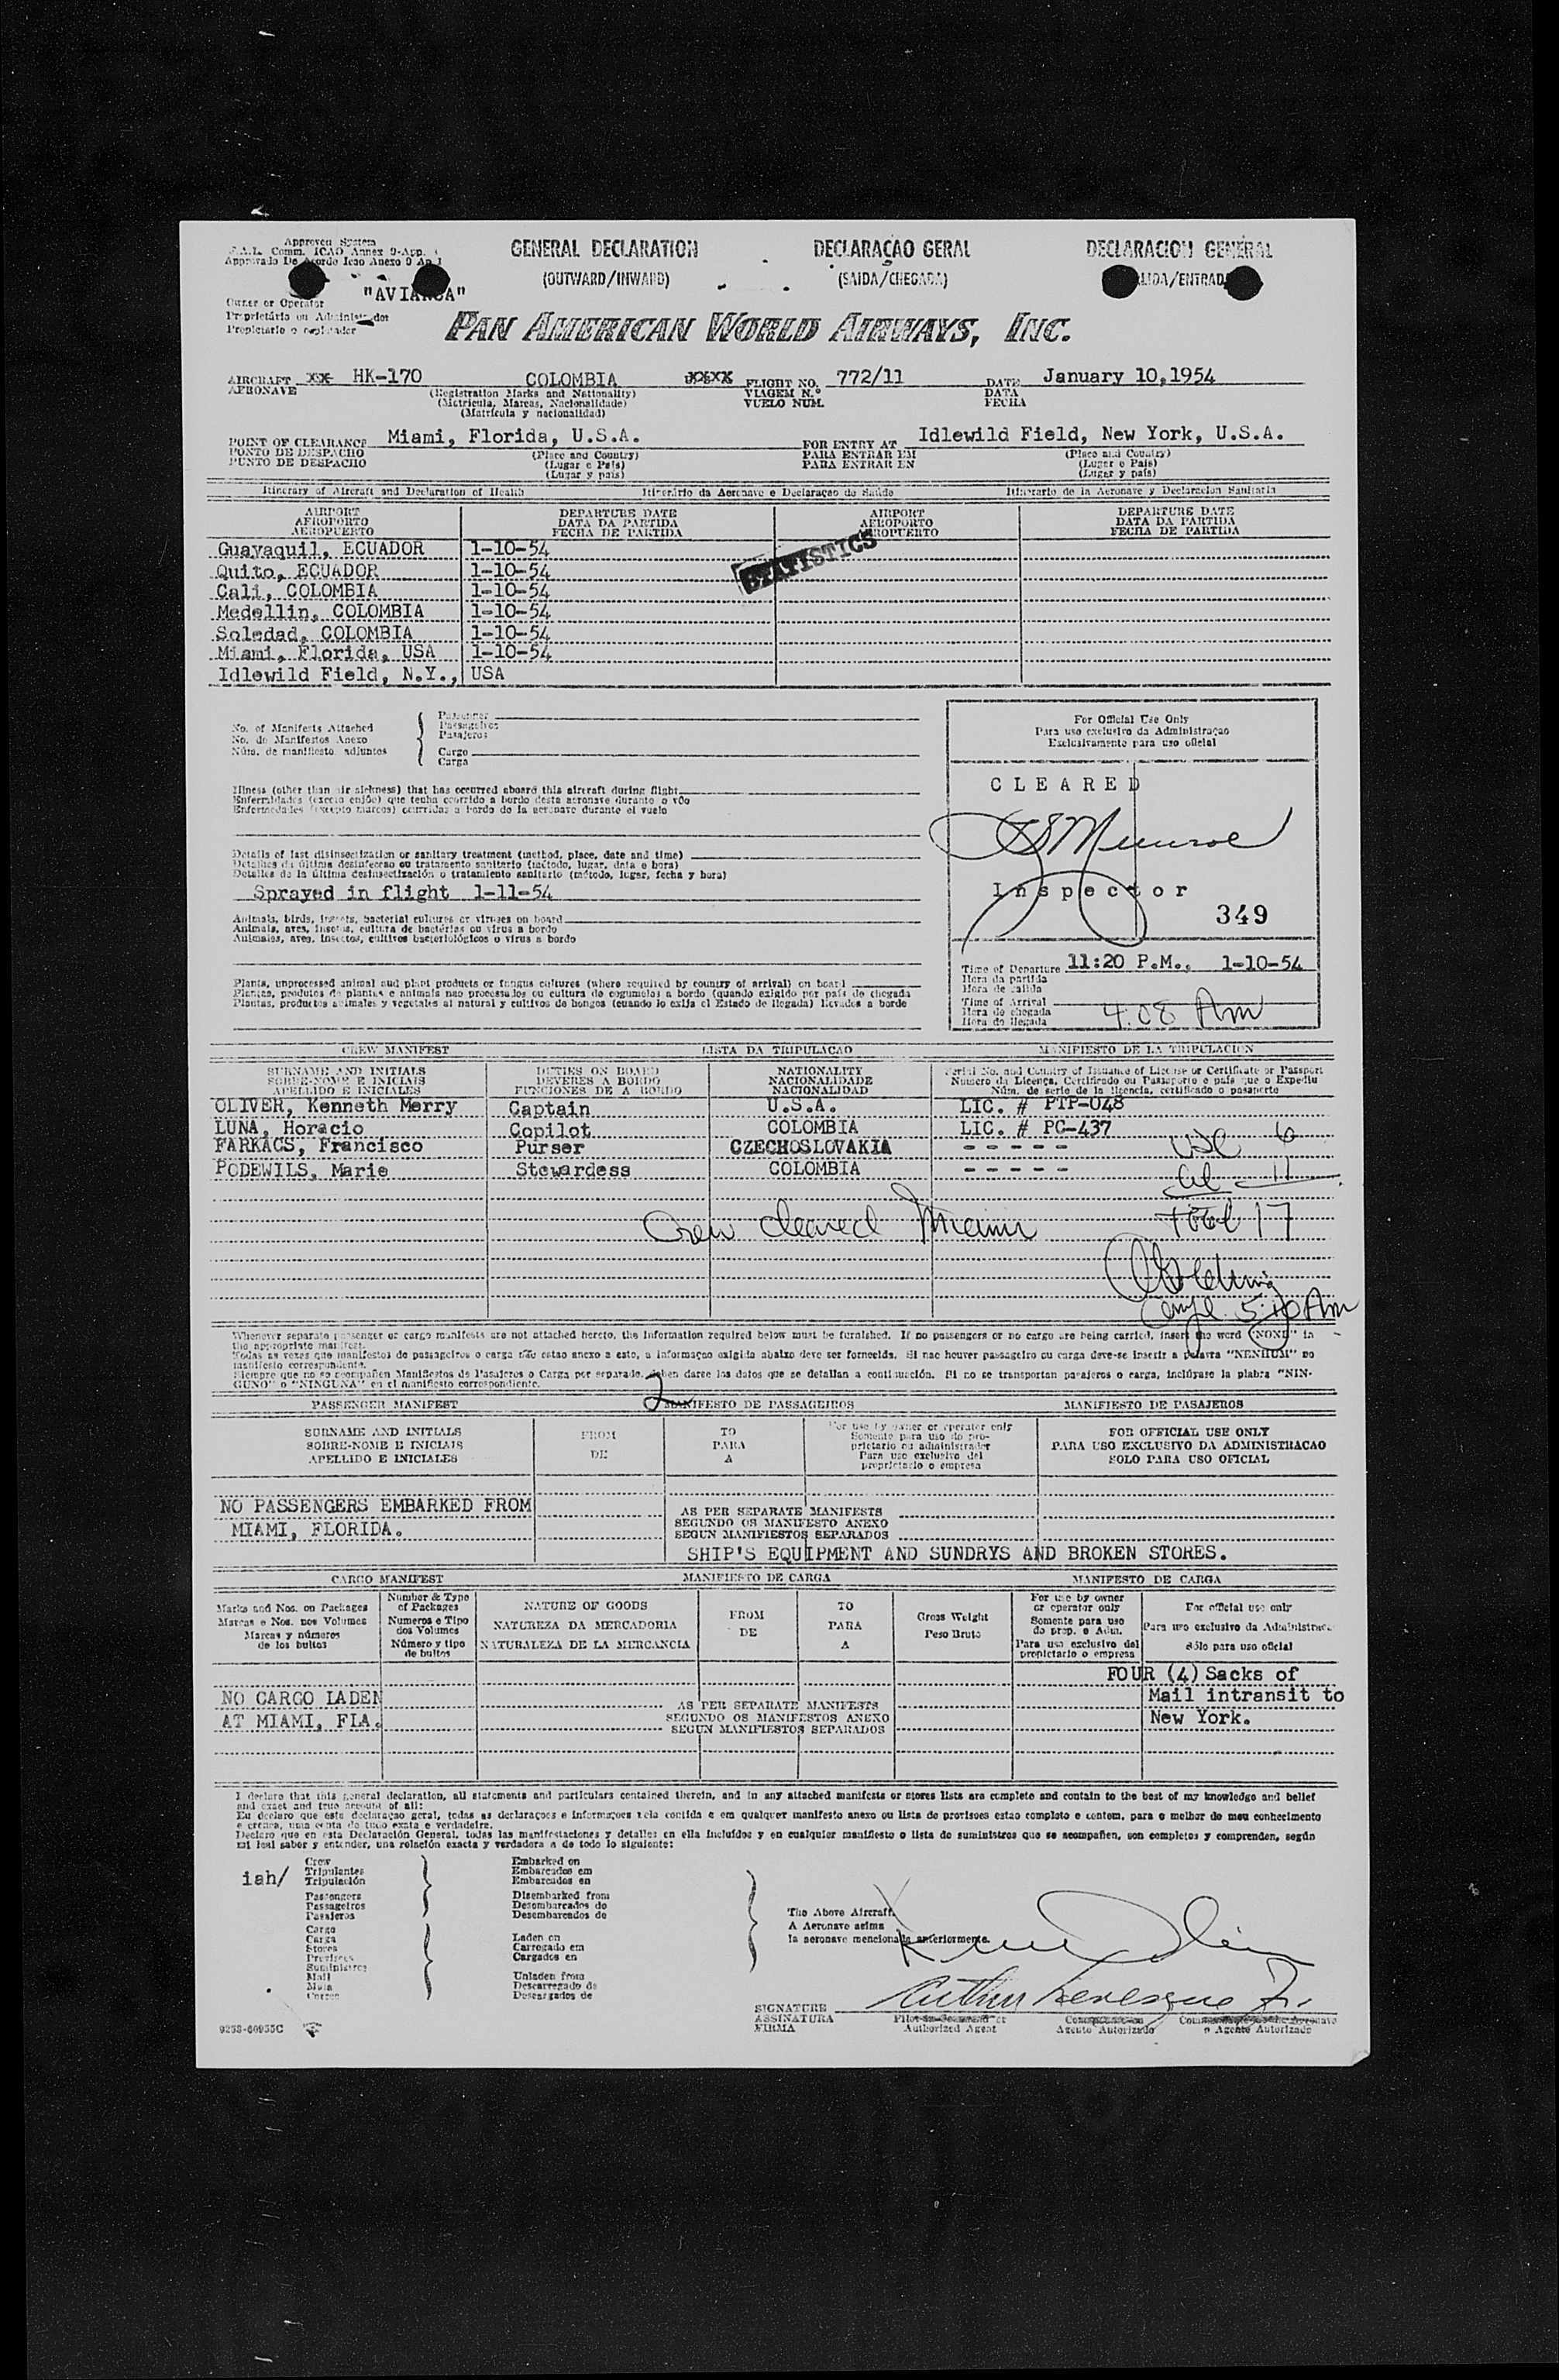 Approved System
F.A.L. Comm. ICAO Annex 9-App. 1
GENERAL DECLARATION
(OUTWARD/INWARD)
DECLARAÇAO GERAL
(SAIDA/CHEGADA)
DECLARACION GENERAL
Owner or Operator
"AVIANCA"
PAN AMERICAN WORLD AIRWAYS, INC.
AIRCRAFT HK-170 COLOMBIA FLIGHT NO. 772/11 DATE January 10,1954
AERONAVE (Registration Marks and Nationality) VIAGEM N.º DATA
(Matricula, Marcas, Nacionalidade) VUELO NUM. FECHA
(Matrícula y nacionalidad)
POINT OF CLEARANCE Miami, Florida, U.S.A. FOR ENTRY AT Idlewild Field, New York, U.S.A.
PONTO DE DESPACHO (Place and Country) PARA ENTRAR EM (Place and Country)
PUNTO DE DESPACHO (Lugar e Pais) PARA ENTRAR EN (Lugar e Pais)
(Lugar y país) (Lugar y país)
Itinerary of Aircraft and Declaration of Health Itinerário da Aeronave e Declaraçao de Saúde Itinerario de la Aeronave y Declaracion Sanitaria
AIRPORT DEPARTURE DATE AIRPORT DEPARTURE DATE
AEROPORTO DATA DA PARTIDA AEROPORTO DATA DA PARTIDA
AEROPUERTO FECHA DE PARTIDA AEROPUERTO FECHA DE PARTIDA
Guayaquil, ECUADOR 1-10-54
STATISTICS
Quito, ECUADOR 1-10-54
Cali, COLOMBIA 1-10-54
Medellin, COLOMBIA 1-10-54
Soledad, COLOMBIA 1-10-54
Miami, Florida, USA 1-10-54
Idlewild Field, N.Y., USA
No. of Manifests Attached Passenger
No. de Manifestos Anexo Passageiros
Núm. de manifiesto adjuntos Pasajeros
Cargo
Carga
For Official Use Only
Para uso exclusivo da Administraçao
Exclusivamente para uso oficial
CLEARED
Munroe
Inspector
349
Time of Departure 11:20 P.M., 1-10-54
Hora da partida
Hora de salida
Time of Arrival 4:08 Am
Hora de chegada
Hora de llegada
Illness (other than air sickness) that has occurred aboard this aircraft during flight
Enfermidades (exceto enjôo) que tenha ocorrido a bordo desta aeronave durante o vôo
Enfermedades (excepto mareos) ocurridas a bordo de la aeronave durante el vuelo
Details of last disinsectization or sanitary treatment (method, place, date and time)
Detalhes da última desinfeccao ou tratamento sanitario (método, lugar, data e hora)
Detalles de la última desinsectización o tratamiento sanitario (método, lugar, fecha y hora)
Sprayed in flight 1-11-54
Animals, birds, insects, bacterial cultures or viruses on board
Animais, aves, insetos, cultura de bactérias ou virus a bordo
Animales, aves, insectos, cultivos bacteriológicos o virus a bordo
Plants, unprocessed animal and plant products or fungus cultures (where required by country of arrival) on board
Plantas, produtos de plantas e animais nao processados ou cultura de cogumelos a bordo (quando exigido por pais de chegada
Plantas, productos animales y vegetales al natural y cultivos de hongos (cuando lo exija el Estado de llegada) llevados a bordo
CREW MANIFEST LISTA DA TRIPULACAO MANIFIESTO DE LA TRIPULACION
SURNAME AND INITIALS DUTIES ON BOARD NATIONALITY Serial No. and Country of Issuance of License or Certificate or Passport
SOBRE-NOME E INICIAIS DEVERES A BORDO NACIONALIDADE Numero da Licença, Certificado ou Passaporte e pais que o Expediu
APELLIDO E INICIALES FUNCIONES DE A BORDO NACIONALIDAD Núm. de serie de la licencia, certificado o pasaporte
OLIVER, Kenneth Merry Captain U.S.A. LIC. # PTP-048
LUNA, Horacio Copilot COLOMBIA LIC. # PC-437
FARKACS, Francisco Purser CZECHOSLOVAKIA - - - - - USC 6
PODEWILS, Marie Stewardess COLOMBIA - - - - - al 11
Crew cleared Miami Total 17
Compl. 5:10 Am
Whenever separate passenger or cargo manifests are not attached hereto, the information required below must be furnished. If no passengers or no cargo are being carried, insert the word "NONE" in
the appropriate manifest.
Todas as vezes que manifestos de passageiros o carga não estao anexo a esto, a informaçao exigida abaixo deve ser fornecida. Si nao houver passageiro ou carga deve-se inserir a palavra "NENHUM" no
manifesto correspondente.
Siempre que no se acompañen Manifiestos de Pasajeros o Carga por separado, deben darse los datos que se detallan a continuación. Si no se transportan pasajeros o carga, inclúyase la plabra "NIN-
GUNO" o "NINGUNA" en el manifiesto correspondiente.
2
PASSENGER MANIFEST MANIFESTO DE PASSAGEIROS MANIFIESTO DE PASAJEROS
SURNAME AND INITIALS FROM TO For use by owner or operator only FOR OFFICIAL USE ONLY
SOBRE-NOME E INICIAIS DE PARA Somente para uso do pro- PARA USO EXCLUSIVO DA ADMINISTRACAO
APELLIDO E INICIALES A prietario ou administrador SOLO PARA USO OFICIAL
Para uso exclusivo del
propietario o empresa
NO PASSENGERS EMBARKED FROM AS PER SEPARATE MANIFESTS
MIAMI, FLORIDA. SEGUNDO OS MANIFESTO ANEXO
SEGUN MANIFIESTOS SEPARADOS
SHIP'S EQUIPMENT AND SUNDRYS AND BROKEN STORES.
CARGO MANIFEST MANIFIESTO DE CARGA MANIFESTO DE CARGA
Marks and Nos. on Packages
Marcas e Nos. nos Volumes
Marcas y números
de los bultos
Number & Type
of Packages
Numeros e Tipo
dos Volumes
Número y tipo
de bultos
NATURE OF GOODS
NATUREZA DA MERCADORIA
NATURALEZA DE LA MERCANCIA
FROM
DE
TO
PARA
A
Gross Weight
Peso Bruto
For use by owner
or operator only
Somente para uso
do prop. e Adm.
Para uso exclusivo del
propietario o empresa
For official use only
Para uso exclusivo da Administrac.
Sólo para uso oficial
FOUR (4) Sacks of
Mail intransit to
New York.
NO CARGO LADEN
AT MIAMI, FLA.
AS PER SEPARATE MANIFESTS
SEGUNDO OS MANIFESTOS ANEXO
SEGUN MANIFIESTOS SEPARADOS
I declare that this general declaration, all statements and particulars contained therein, and in any attached manifests or stores lists are complete and contain to the best of my knowledge and belief
and exact and true account of all:
Eu declaro que este declaraçao geral, todas as declaraçoes e informaçoes nela contida e em qualquer manifesto anexo ou lista de provisoes estao completo e contem, para o melhor do meu conhecimento
e crenca, uma conta de tudo exata e verdadeira.
Declaro que en esta Declaración General, todas las manifestaciones y detalles en ella incluídos y en cualquier manifiesto o lista de suministros que se acompañen, son completos y comprenden, según
mi leal saber y entender, una relación exacta y verdadera a de todo lo siguiente:
iah/
Crew
Tripulantes
Tripulación
Passengers
Passageiros
Pasajeros
Cargo
Carga
Stores
Suministros
Mail
Mala
Correo
Embarked on
Embarcados em
Embarcados en
Disembarked from
Desembarcados do
Desembarcados de
Laden on
Carregado em
Cargados en
Unladen from
Descarregado de
Descargados de
The Above Aircraft.
A Aeronave acima
la aeronave mencionada anteriormente.
SIGNATURE
ASSINATURA
FIRMA
Arthur Levesque Jr.
Authorized Agent Agente Autorizado o Agente Autorizado